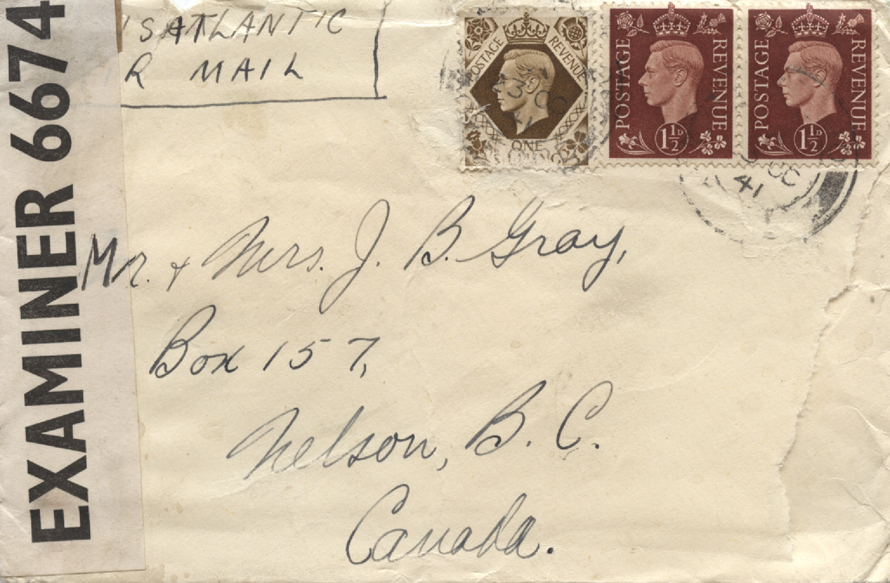 EXAMINER 6674
SATLANTIC
R MAIL
POSTAGE REVENUE
ONE
POSTAGE REVENUE
1½D
POSTAGE REVENUE
1½D
OC
41
Mr. & Mrs. J. B. Gray,
Box 157,
Nelson, B. C.
Canada.